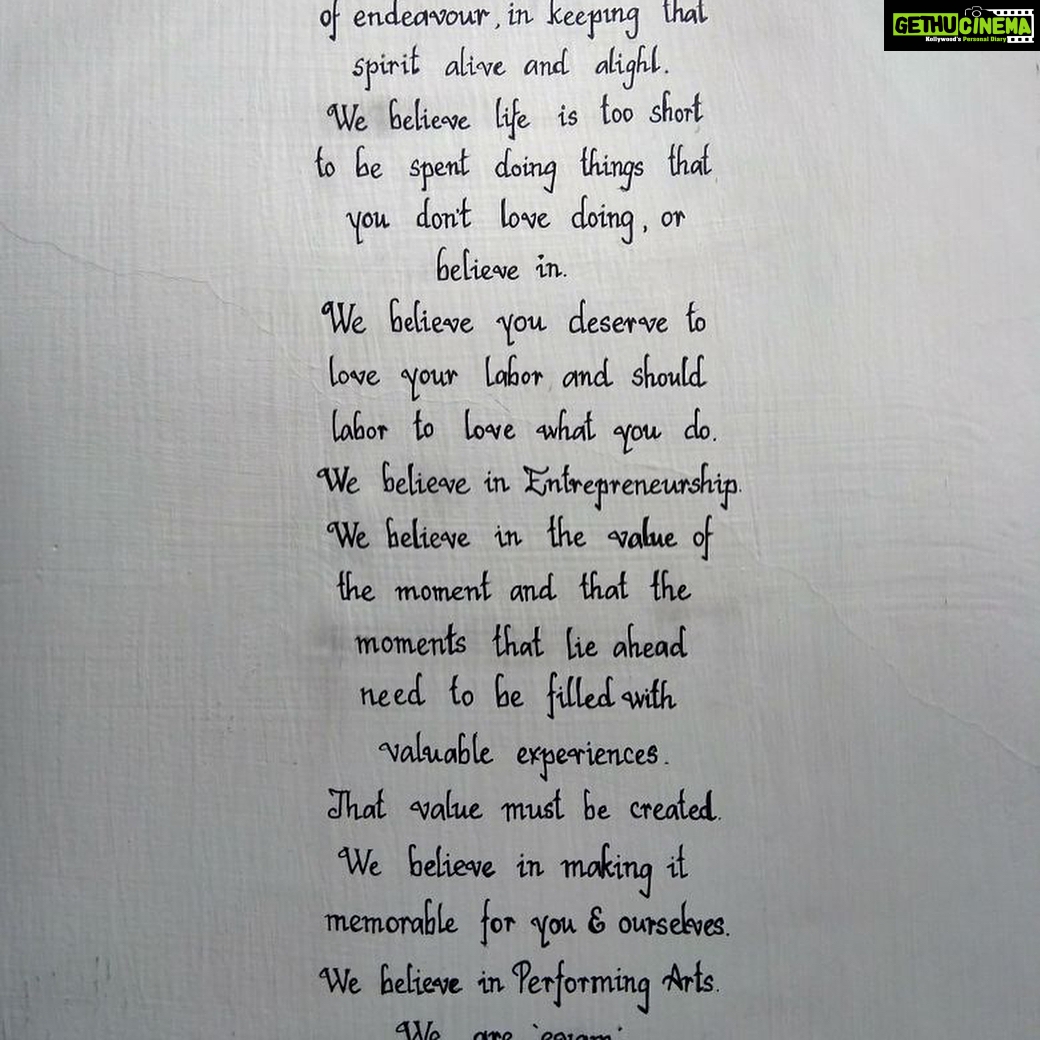 GETHU CINEMA
Kollywood's Personal Diary
of endeavour, in keeping that
spirit alive and alight.
We believe life is too short
to be spent doing things that
you don't love doing, or
believe in.
We believe you deserve to
love your labor and should
labor to love what you do.
We believe in Entrepreneurship.
We believe in the value of
the moment and that the
moments that lie ahead
need to be filled with
valuable experiences.
That value must be created.
We believe in making it
memorable for you & ourselves.
We believe in Performing Arts.
We are